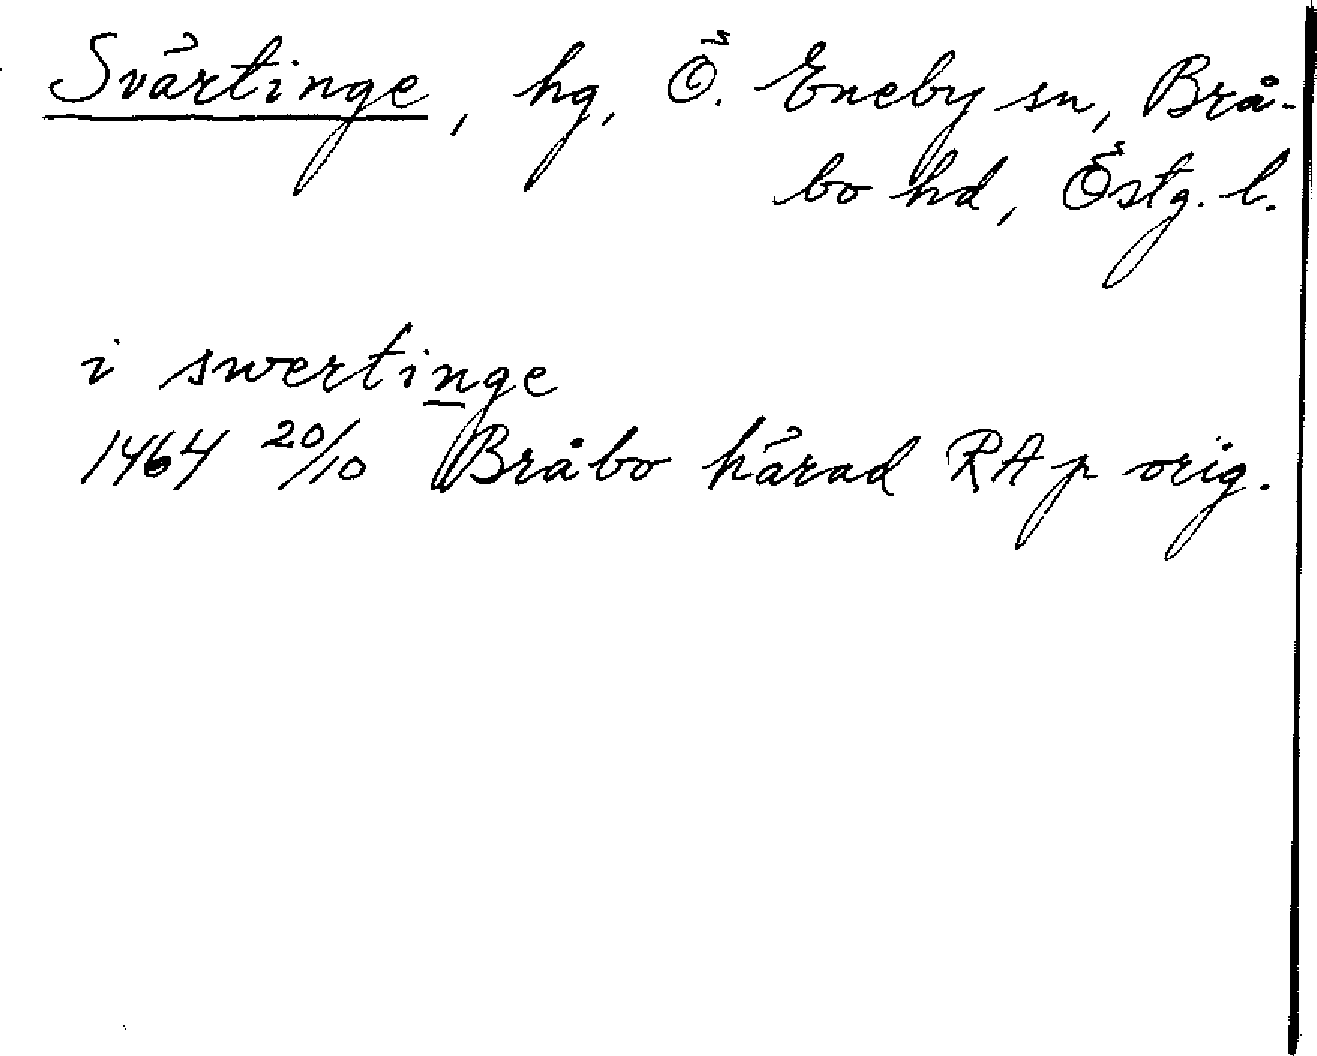 Svärtinge, hg, Ö. Eneby sn, Brå-
bo hd, Östg. l.
i swertinge
1464 20/10 Bråbo härad RA p orig.